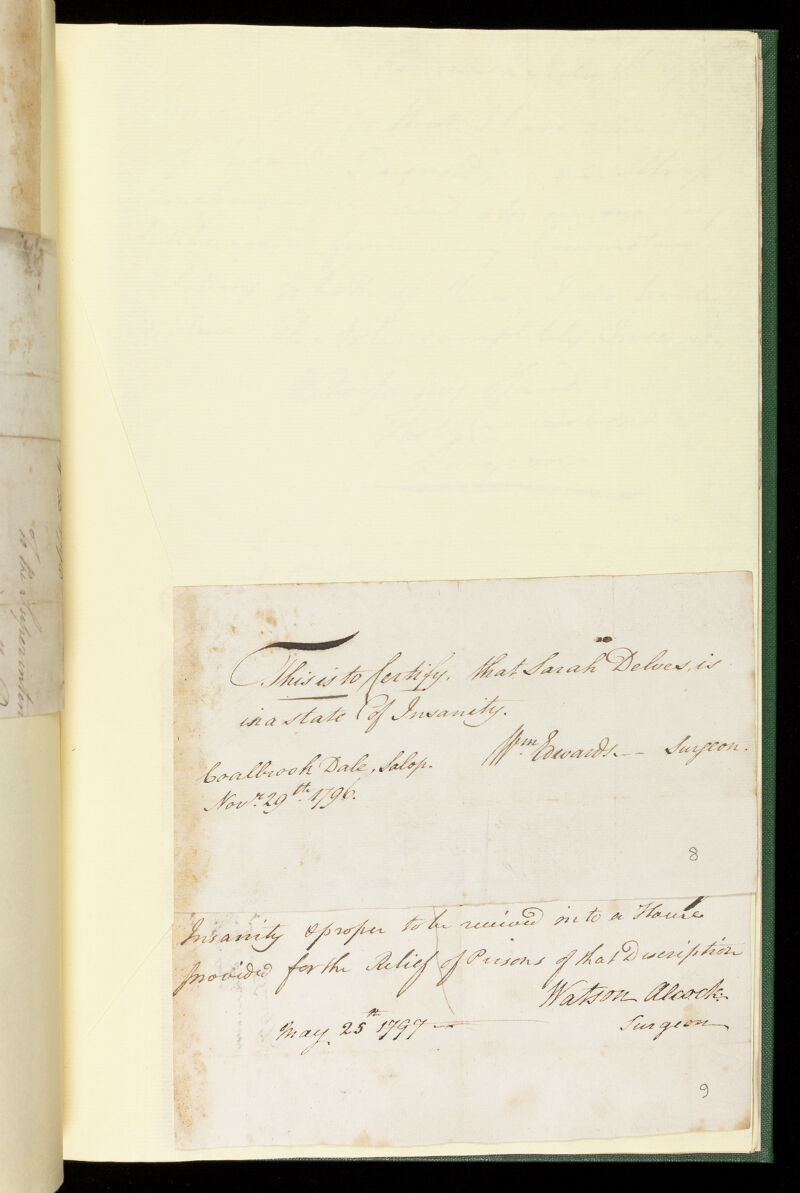 This is to Certify, that Sarah Delves, is
in a state of Insanity.
Wm Edwards — Surgeon.
Coalbrook Dale, Salop.
Novr. 29th. 1796.
8
Insanity & proper to be received into a House
provided for the Relief of Prisons of that Description
Watson Alcock
Surgeon
May 25th 1797 —
9
to the Superenten